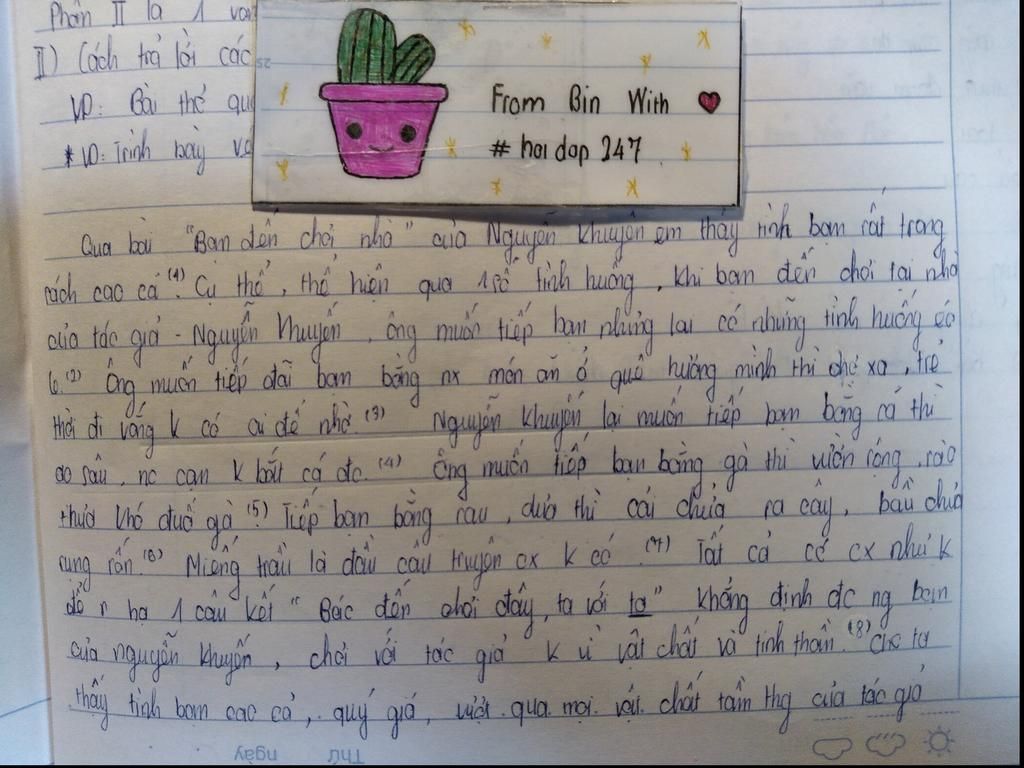 Phần II là 1 va
II) Cách trả lời các
VD: Bài thơ qua
* VD: Trình bày va
From Bin With
# hoi dap 247
Qua bài "Bạn đến chơi nhà" của Nguyễn Khuyến em thấy tình bạn rất trong
cách cao cả (1). Cụ thể, thể hiện qua 1 số tình huống, khi bạn đến chơi tại nhà
của tác giả - Nguyễn Khuyến, ông muốn tiếp bạn nhưng lại có những tình huống éo
(2) Ông muốn tiếp đãi bạn bằng nx món ăn ở quê hương mình thì chợ xa, trẻ
thời đi vắng k có ai để nhờ. (3) Nguyễn Khuyến lại muốn tiếp bạn bằng cá thì
ao sâu, nc cạn k bắt cá đc. (4) Ông muốn tiếp bạn bằng gà thì vườn rộng, rào
thưa khó đuổi gà (5) Tiếp bạn bằng rau, dưa thì cải chửa ra cây, bầu chửa
rụng rốn. (6) Miếng trầu là đầu câu truyện cx k có. (7) Tất cả có cx như k
để r hạ 1 câu kết "Bác đến chơi đây, ta với ta" khẳng định đc ng bạn
của nguyễn Khuyến, chơi với tác giả k vì vật chất và tinh thần. (8) Cx ta
thấy tình bạn cao cả, quý giá, vượt qua mọi vật chất tầm thg của tác giả
Thứ
ngày